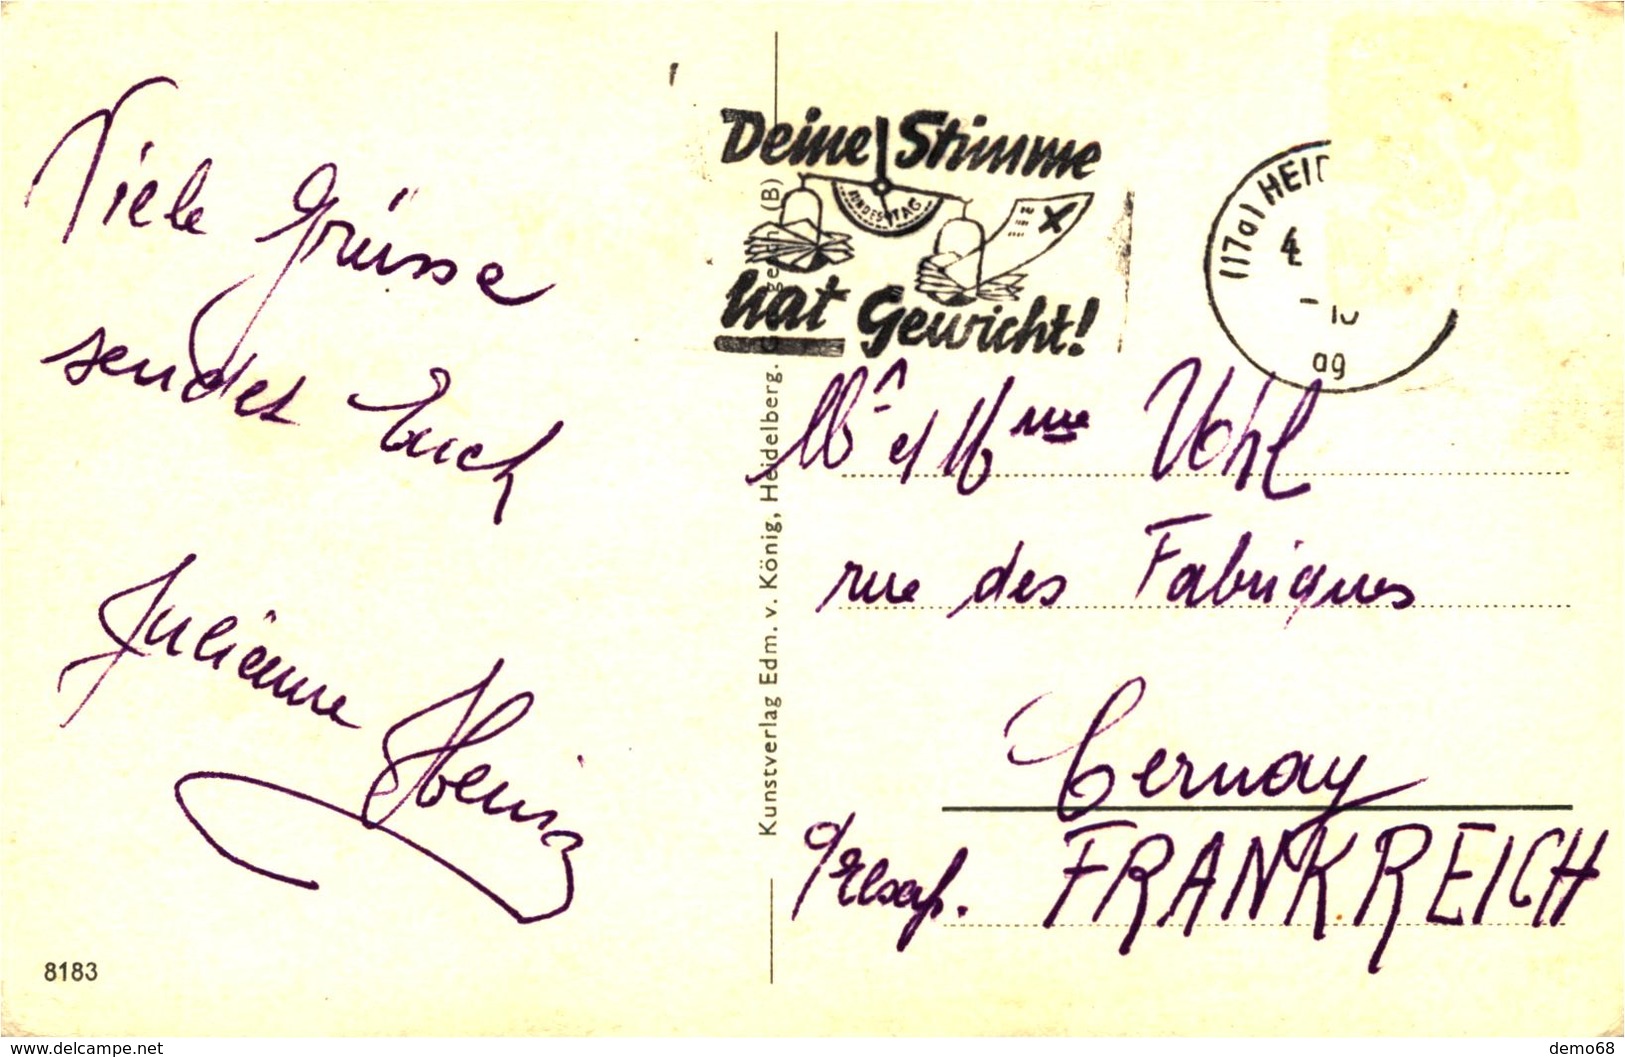 Viele Grüsse
sendet Euch
Julianne Heinz
8183
Kunstverlag Edm. v. König, Heidelberg.
(B)
Deine Stimme
BUNDESTAG
hat Gewicht!
(17a) HEID
4
ag
Mr et Mme Vohl
rue des Fabriques
Cernay
FRANKREICH
https://www.delcampe.net
demo68